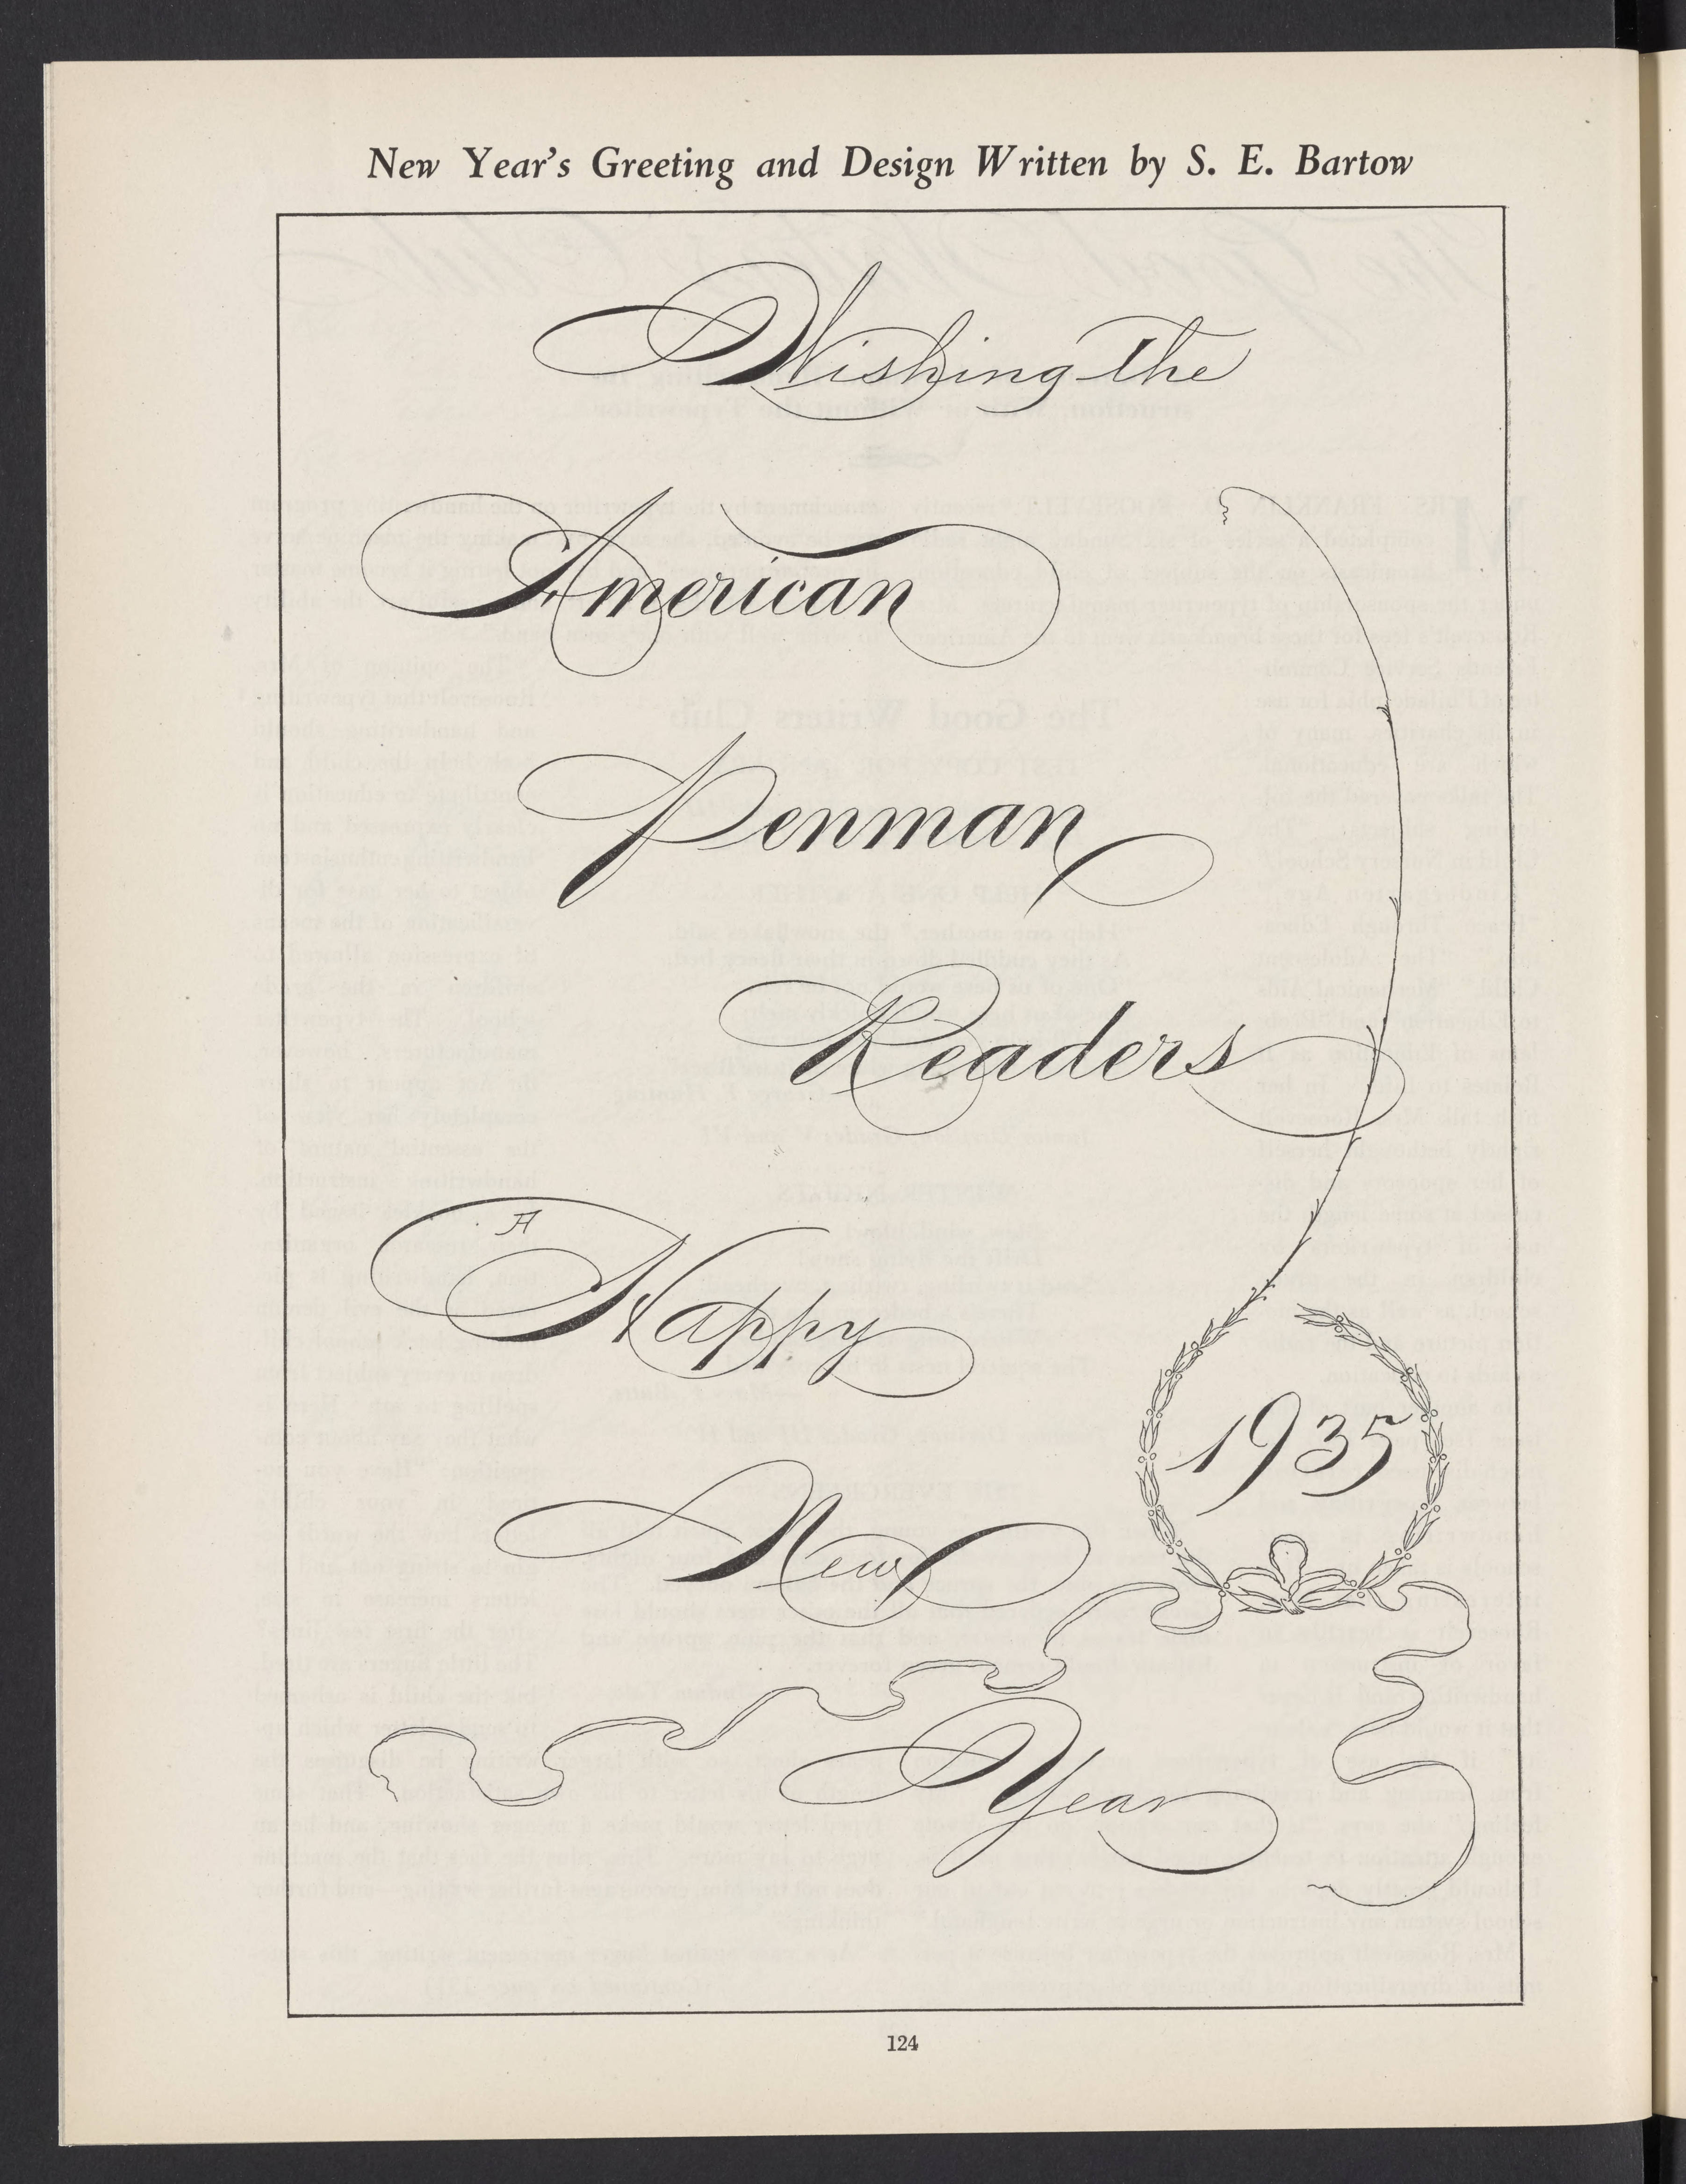 New Year's Greeting and Design Written by S. E. Bartow
Wishing the
American
Penman
Readers
A
Happy
1935
New
Year
124